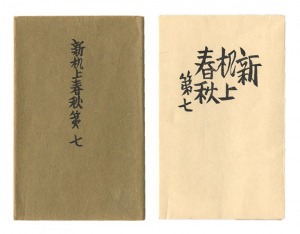 新机上春秋第七
新
机上
春秋
第七